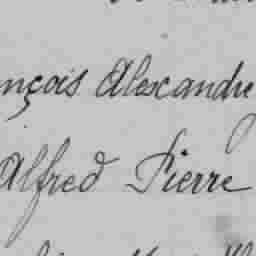 nçois Alexandre
Alfred Pierre